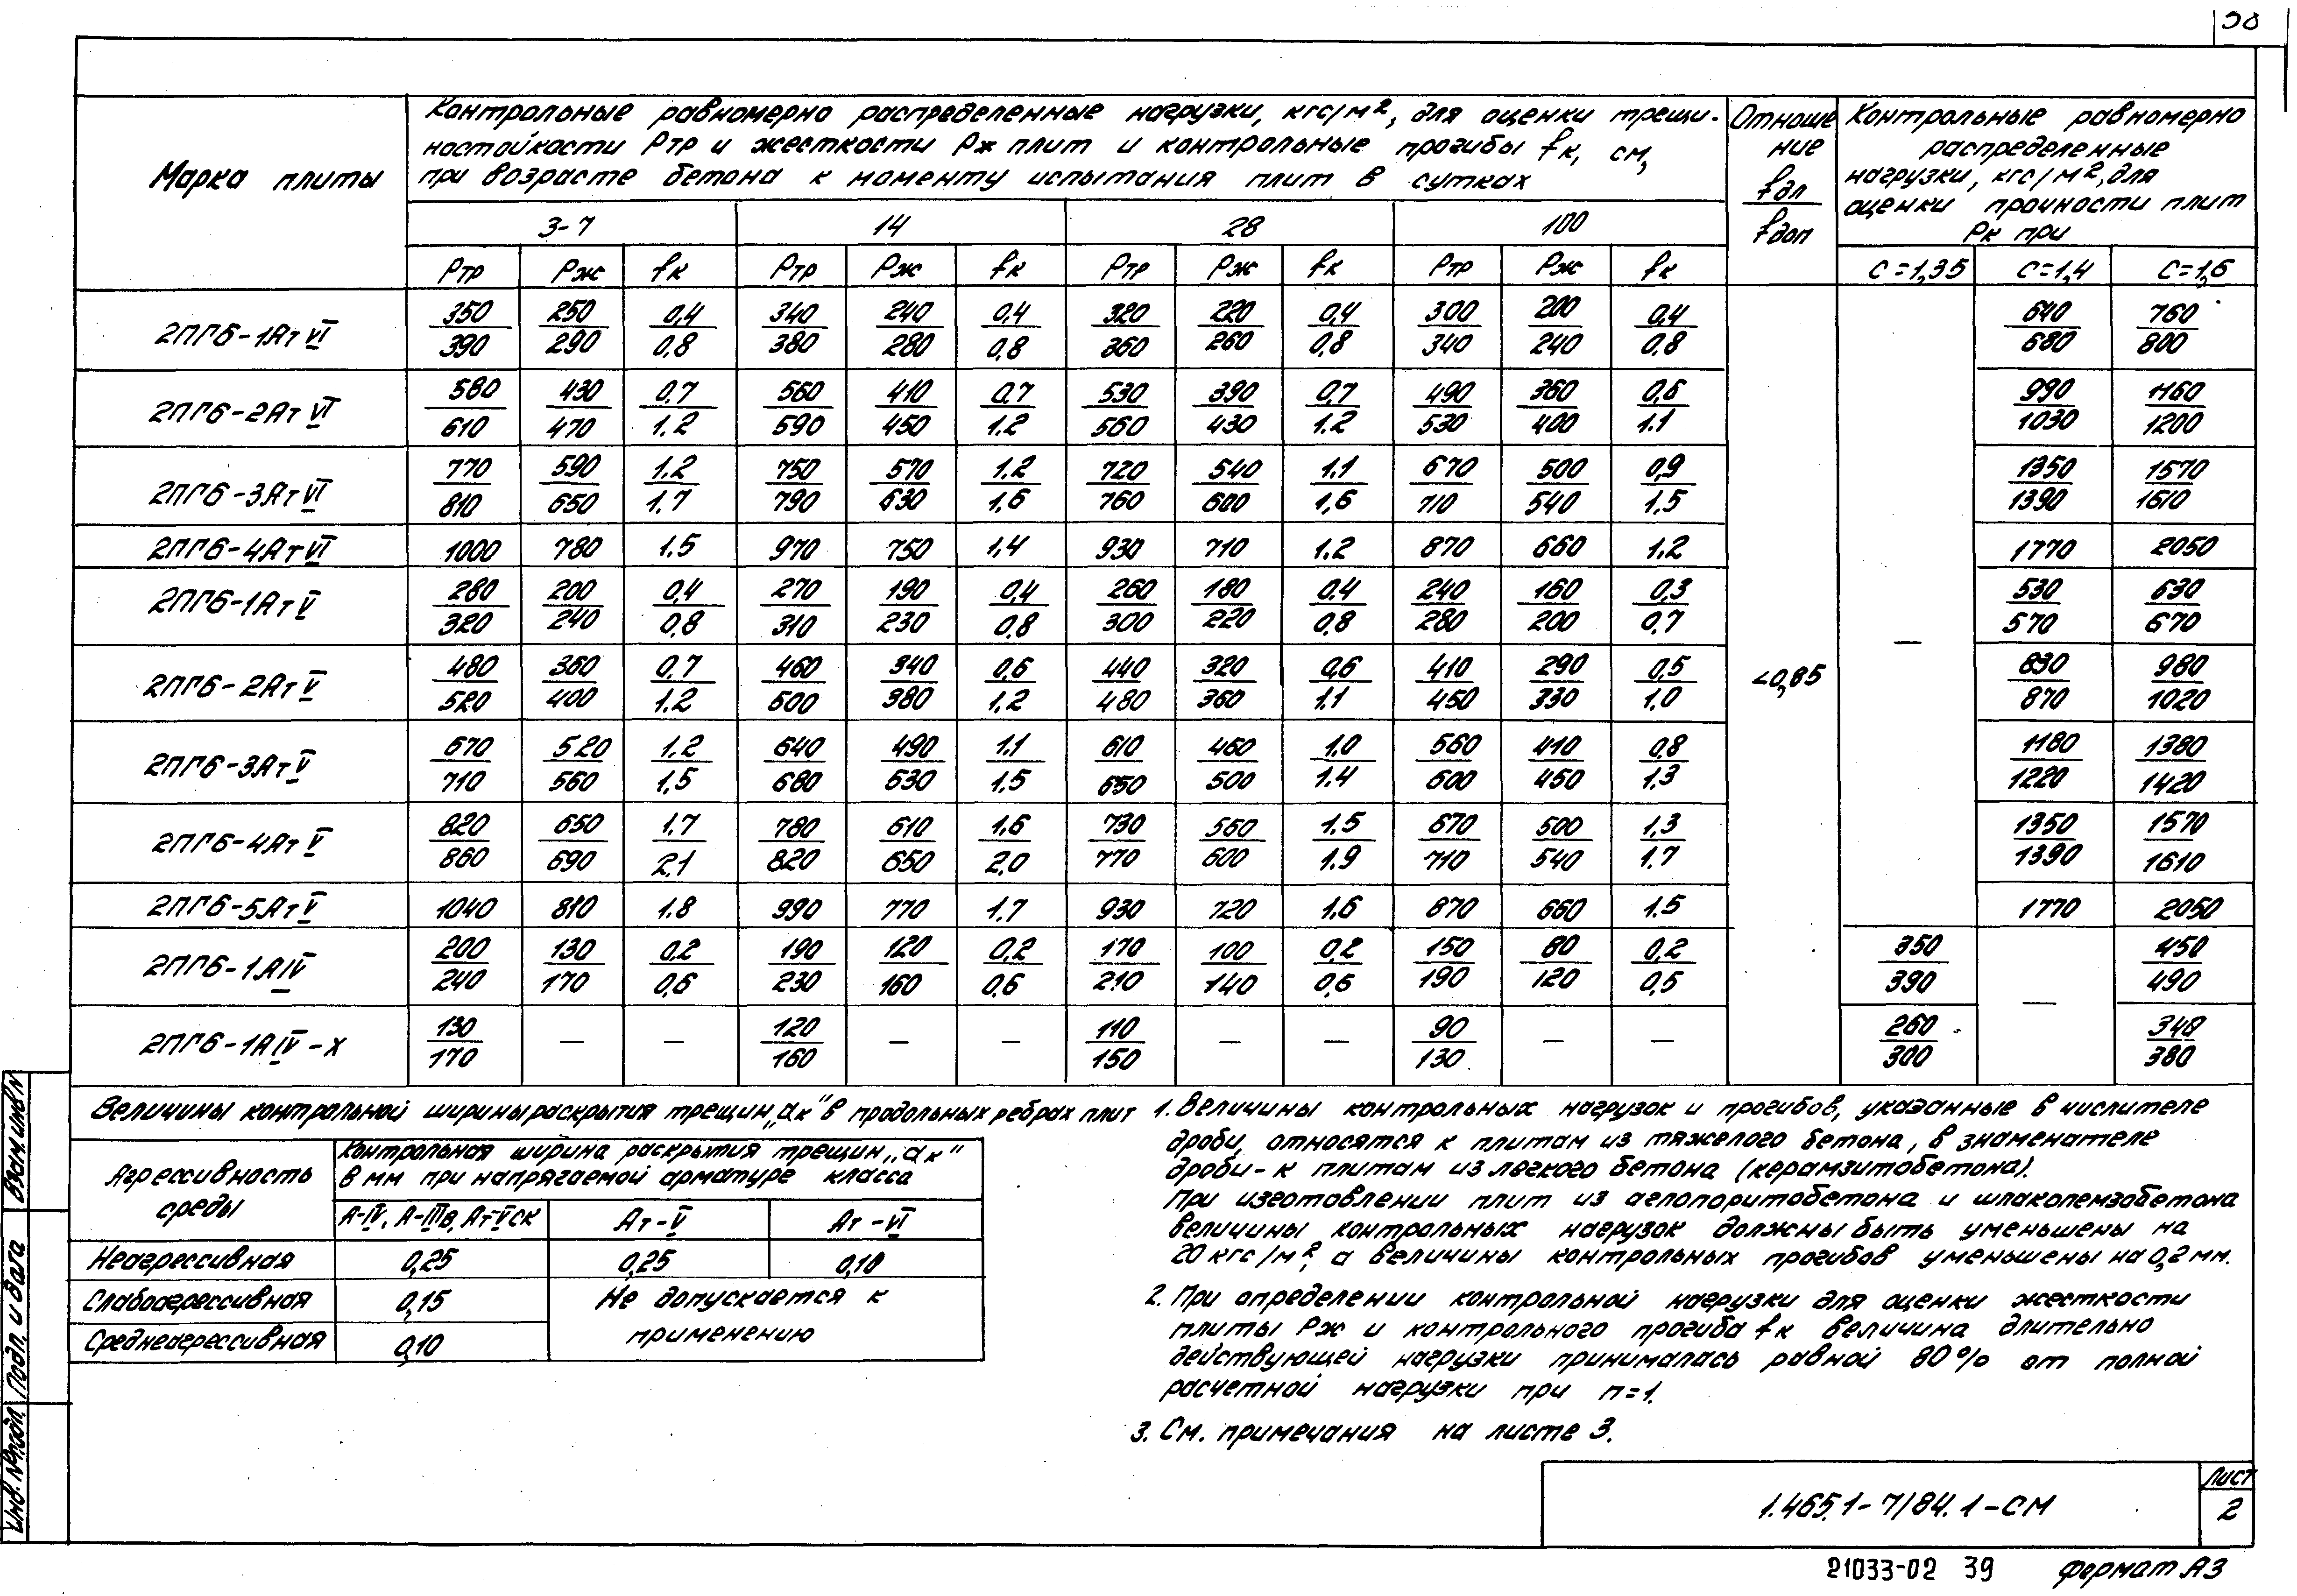 38
Марка плиты
Контрольные равномерно распределенные нагрузки, кгс/м², для оценки трещи-
ностойкости Ртр и жесткости Рж плит и контрольные прогибы fк, см,
при возрасте бетона к моменту испытания плит в сутках
Отноше
ние
fдл
fдоп
Контрольные равномерно
распределенные
нагрузки, кгс/м², для
оценки прочности плит
Рк при
3-7 14 28 100
Ртр Рж fк Ртр Рж fк Ртр Рж fк Ртр Рж fк С=1,35 С=1,4 С=1,6
2ПГ6-1АтVI 350/390 250/290 0,4/0,8 340/380 240/280 0,4/0,8 320/360 220/260 0,4/0,8 300/340 200/240 0,4/0,8 640/680 760/800
2ПГ6-2АтVI 580/610 430/470 0,7/1.2 560/590 410/450 0,7/1.2 530/560 390/430 0,7/1.2 490/530 360/400 0,6/1.1 990/1030 1160/1200
2ПГ6-3АтVI 770/810 590/650 1.2/1.7 750/790 570/630 1.2/1,6 720/760 540/600 1.1/1,6 670/710 500/540 0,9/1.5 1350/1390 1570/1610
2ПГ6-4АтVI 1000 780 1.5 970 750 1,4 930 710 1.2 870 660 1.2 1770 2050
2ПГ6-1АтV 280/320 200/240 0,4/0,8 270/310 190/230 0,4/0,8 260/300 180/220 0.4/0,8 240/280 160/200 0,3/0,7 — 530/570 630/670
2ПГ6-2АтV 480/520 360/400 0,7/1.2 460/500 340/380 0,6/1,2 440/480 320/360 0,6/1.1 410/450 290/330 0,5/1.0 <0,85 830/870 980/1020
2ПГ6-3АтV 670/710 520/560 1.2/1,5 640/680 490/530 1.1/1.5 610/650 460/500 1,0/1.4 560/600 410/450 0,8/1.3 1180/1220 1380/1420
2ПГ6-4АтV 820/860 650/690 1.7/2,1 780/820 610/650 1,6/2,0 730/770 560/600 1,5/1.9 670/710 500/540 1,3/1.7 1350/1390 1570/1610
2ПГ6-5АтV 1040 810 1.8 990 770 1.7 930 720 1,6 870 660 1.5 1770 2050
2ПГ6-1АIV 200/240 130/170 0,2/0,6 190/230 120/160 0,2/0,6 170/210 100/140 0,2/0,6 150/190 80/120 0,2/0,5 350/390 — 450/490
2ПГ6-1АIV-х 130/170 — — 120/160 — — 110/150 — — 90/130 — — 260/300 340/380
Величины контрольной ширины раскрытия трещин „ак" в продольных ребрах плит
Агрессивность
среды
Контрольная ширина раскрытия трещин „ак"
в мм при напрягаемой арматуре класса
А-IV, А-IIIв, Ат-VСК Ат-V Ат-VI
Неагрессивная 0,25 0,25 0,10
Слабоагрессивная 0,15 Не допускается к
Среднеагрессивная 0,10 применению
1. Величины контрольных нагрузок и прогибов, указанные в числителе
дроби, относятся к плитам из тяжелого бетона, в знаменателе
дроби - к плитам из легкого бетона (керамзитобетона).
При изготовлении плит из аглопоритобетона и шлакопемзобетона
величины контрольных нагрузок должны быть уменьшены на
20 кгс/м², а величины контрольных прогибов уменьшены на 0,2 мм.
2. При определении контрольной нагрузки для оценки жесткости
плиты Рж и контрольного прогиба fк величина длительно
действующей нагрузки принималась равной 80% от полной
расчетной нагрузки при п=1.
3. См. примечания на листе 3.
1.465.1-7/84.1-СМ
Лист
2
Инв. № подл. Подп. и дата Взам. инв. №
21033-02 39 Формат А3